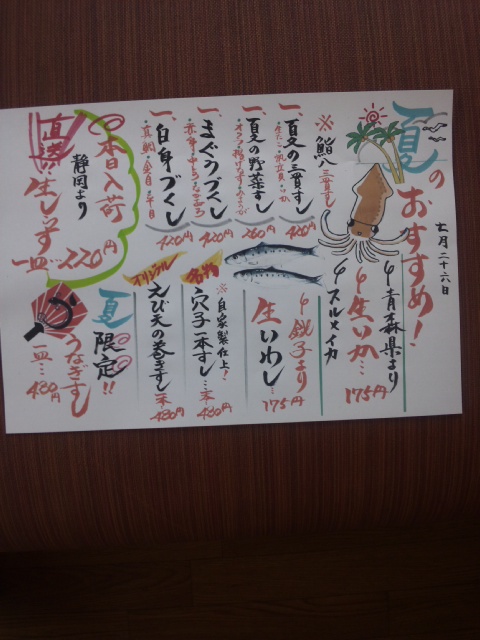 夏のおすすめ!
七月二十六日
青森県より
生いか…175円
スルメイカ
銚子より
生いわし…175円
※鮨八三貫すし
一、夏の三貫すし
420円
一、夏の野菜すし
260円
一、まぐろづくし
420円
一、白身づくし
420円
※自家製仕上!
名物
穴子一本すし…一本
480円
オリジナル
えび天の巻きすし
一本
480円
本日入荷
静岡より
直送
生しらす
一皿…220円
夏限定!!
うなぎすし
一皿…480円